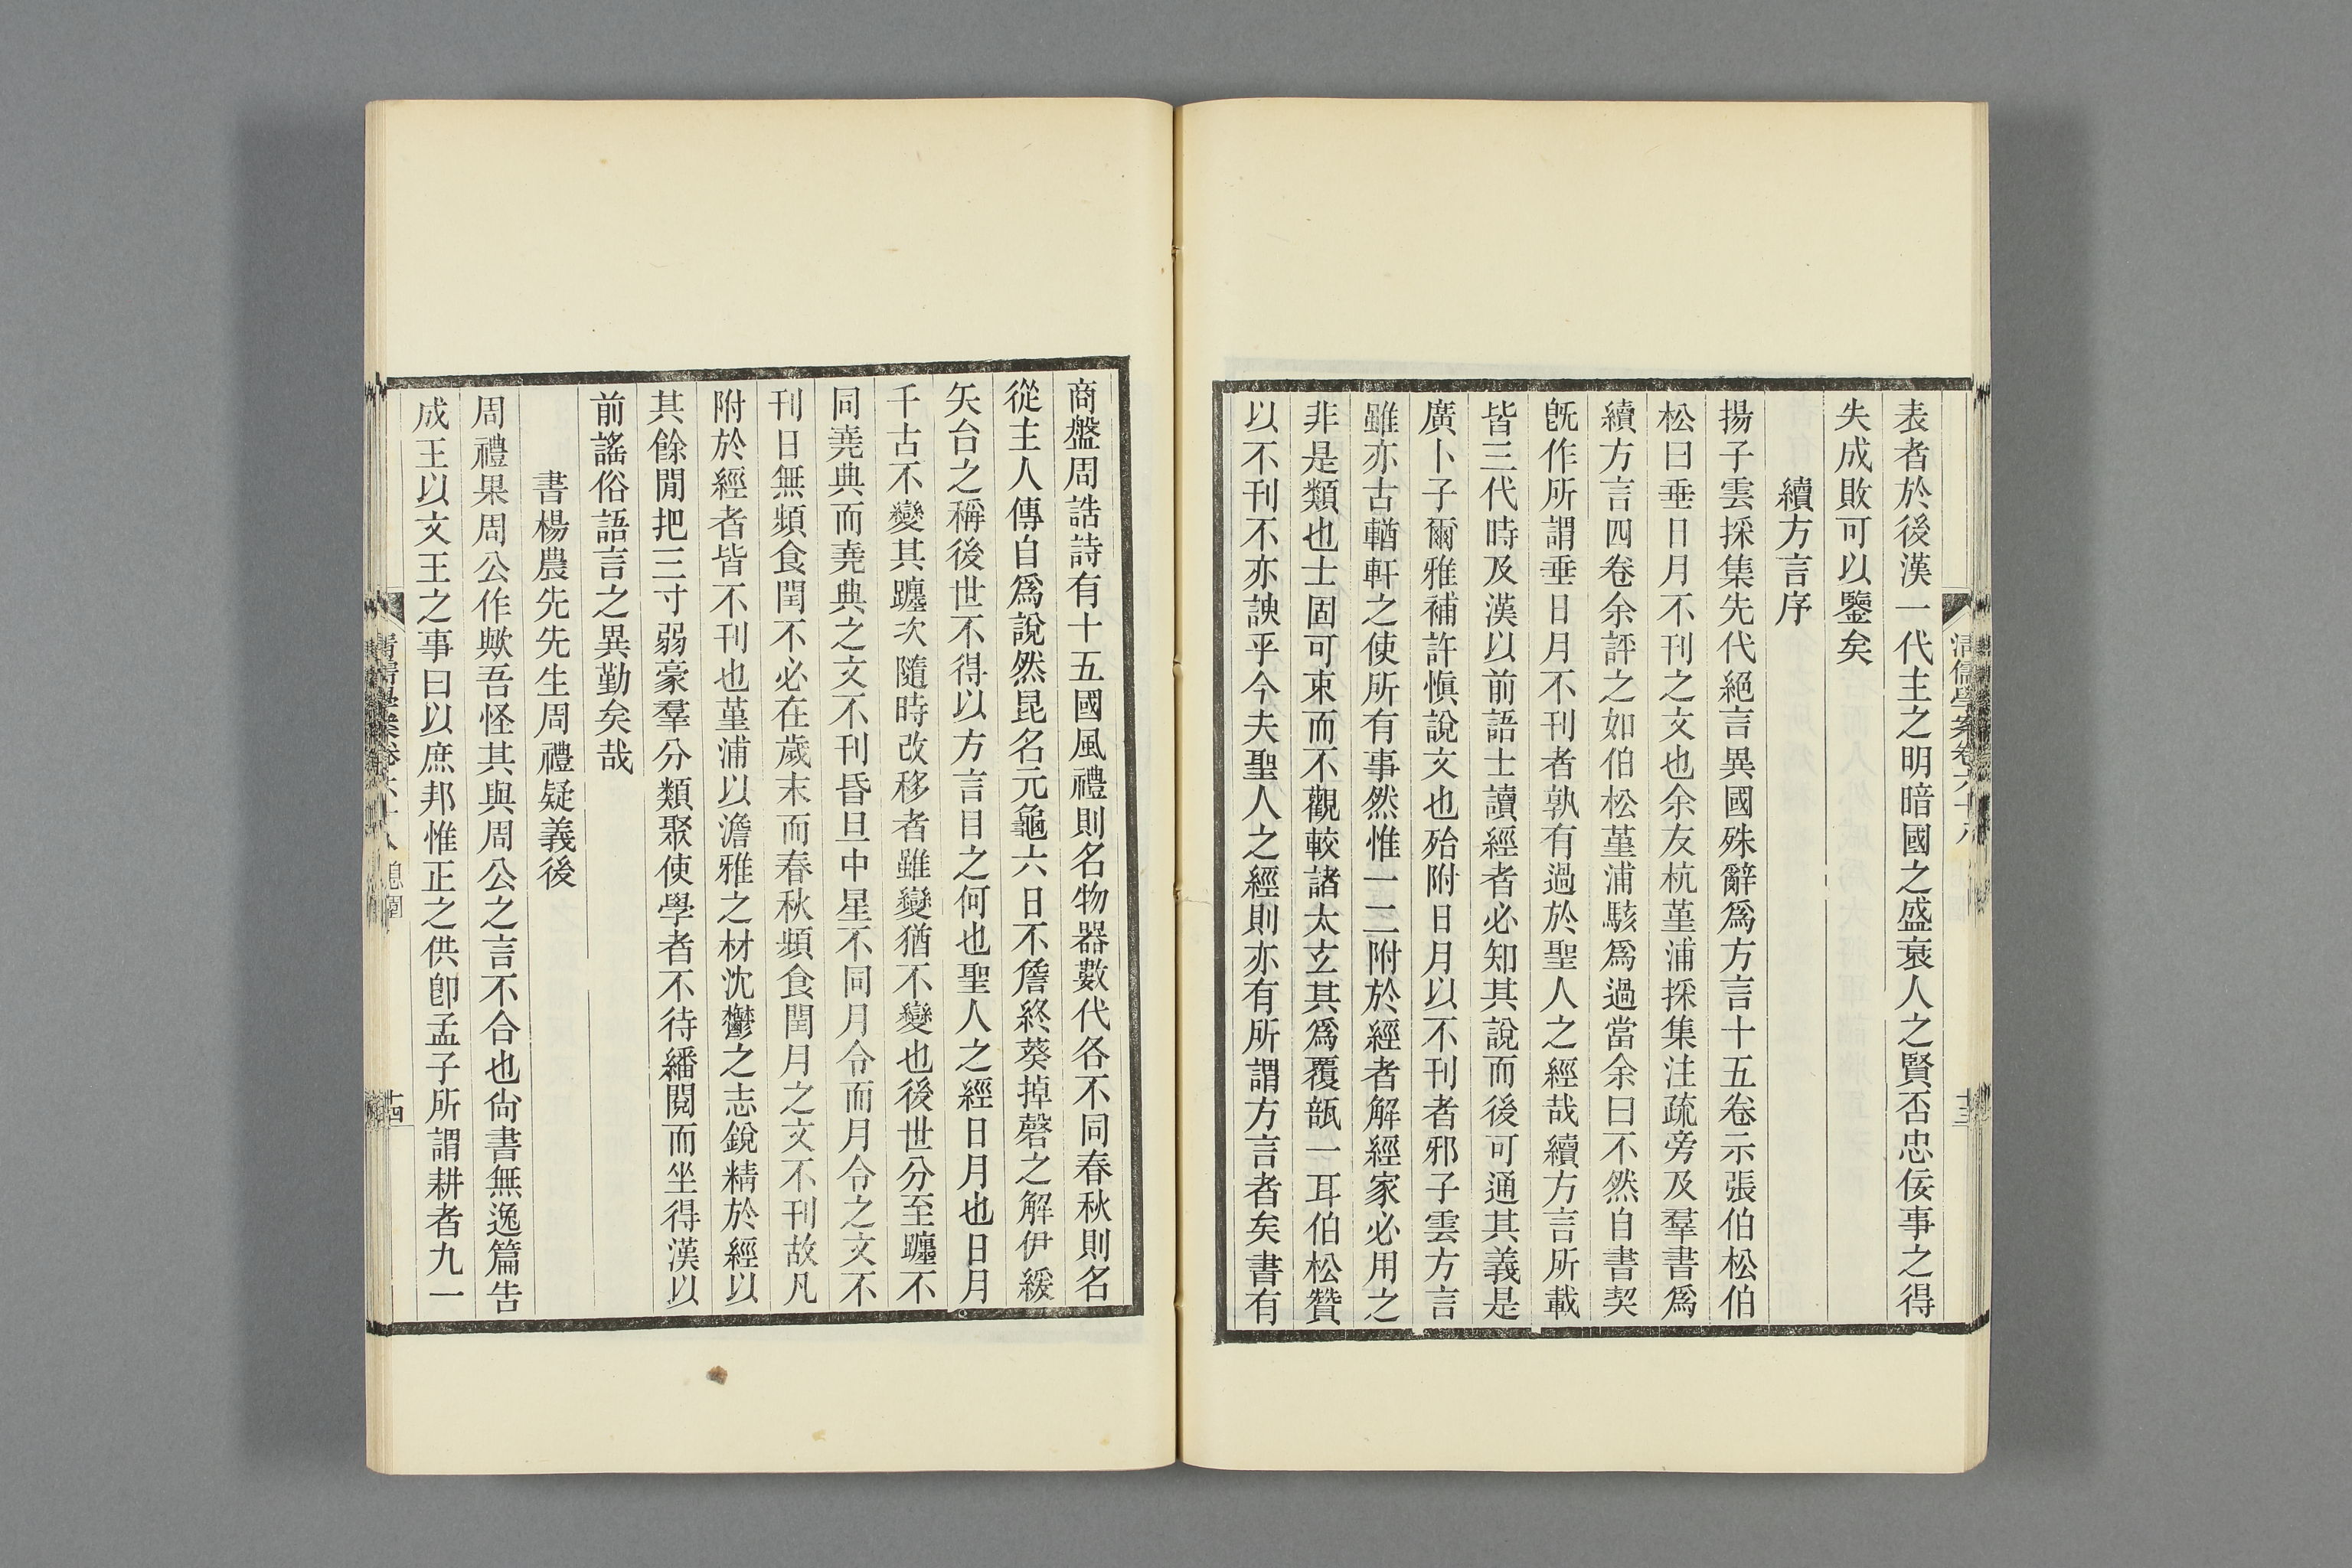 表者於後漢一代主之明暗國之盛衰人之賢否忠佞事之得
失成敗可以鑒矣
續方言序
揚子雲採集先代絕言異國殊辭爲方言十五卷示張伯松伯
松曰垂日月不刊之文也余友杭堇浦採集注疏旁及羣書爲
續方言四卷余評之如伯松堇浦駭爲過當余曰不然自書契
旣作所謂垂日月不刊者孰有過於聖人之經哉續方言所載
皆三代時及漢以前語士讀經者必知其說而後可通其義是
廣卜子爾雅補許愼說文也殆附日月以不刊者邪子雲方言
雖亦古輶軒之使所有事然惟一二附於經者解經家必用之
非是類也士固可束而不觀較諸太玄其爲覆瓿一耳伯松贊
以不刊不亦諛乎今夫聖人之經則亦有所謂方言者矣書有
清儒學案卷六十八
十三
商盤周誥詩有十五國風禮則名物器數代各不同春秋則名
從主人傳自爲說然昆名元龜六日不詹終葵掉磬之解伊緩
矢台之稱後世不得以方言目之何也聖人之經日月也日月
千古不變其躔次隨時改移者雖變猶不變也後世分至躔不
同堯典而堯典之文不刊昏旦中星不同月令而月令之文不
刊日無頻食閏不必在歲末而春秋頻食閏月之文不刊故凡
附於經者皆不刊也堇浦以澹雅之材沈鬱之志銳精於經以
其餘閒把三寸弱豪羣分類聚使學者不待繙閱而坐得漢以
前謠俗語言之異勤矣哉
書楊農先先生周禮疑義後
周禮果周公作歟吾怪其與周公之言不合也尙書無逸篇告
成王以文王之事曰以庶邦惟正之供卽孟子所謂耕者九一
清儒學案卷六十八 息園
十四